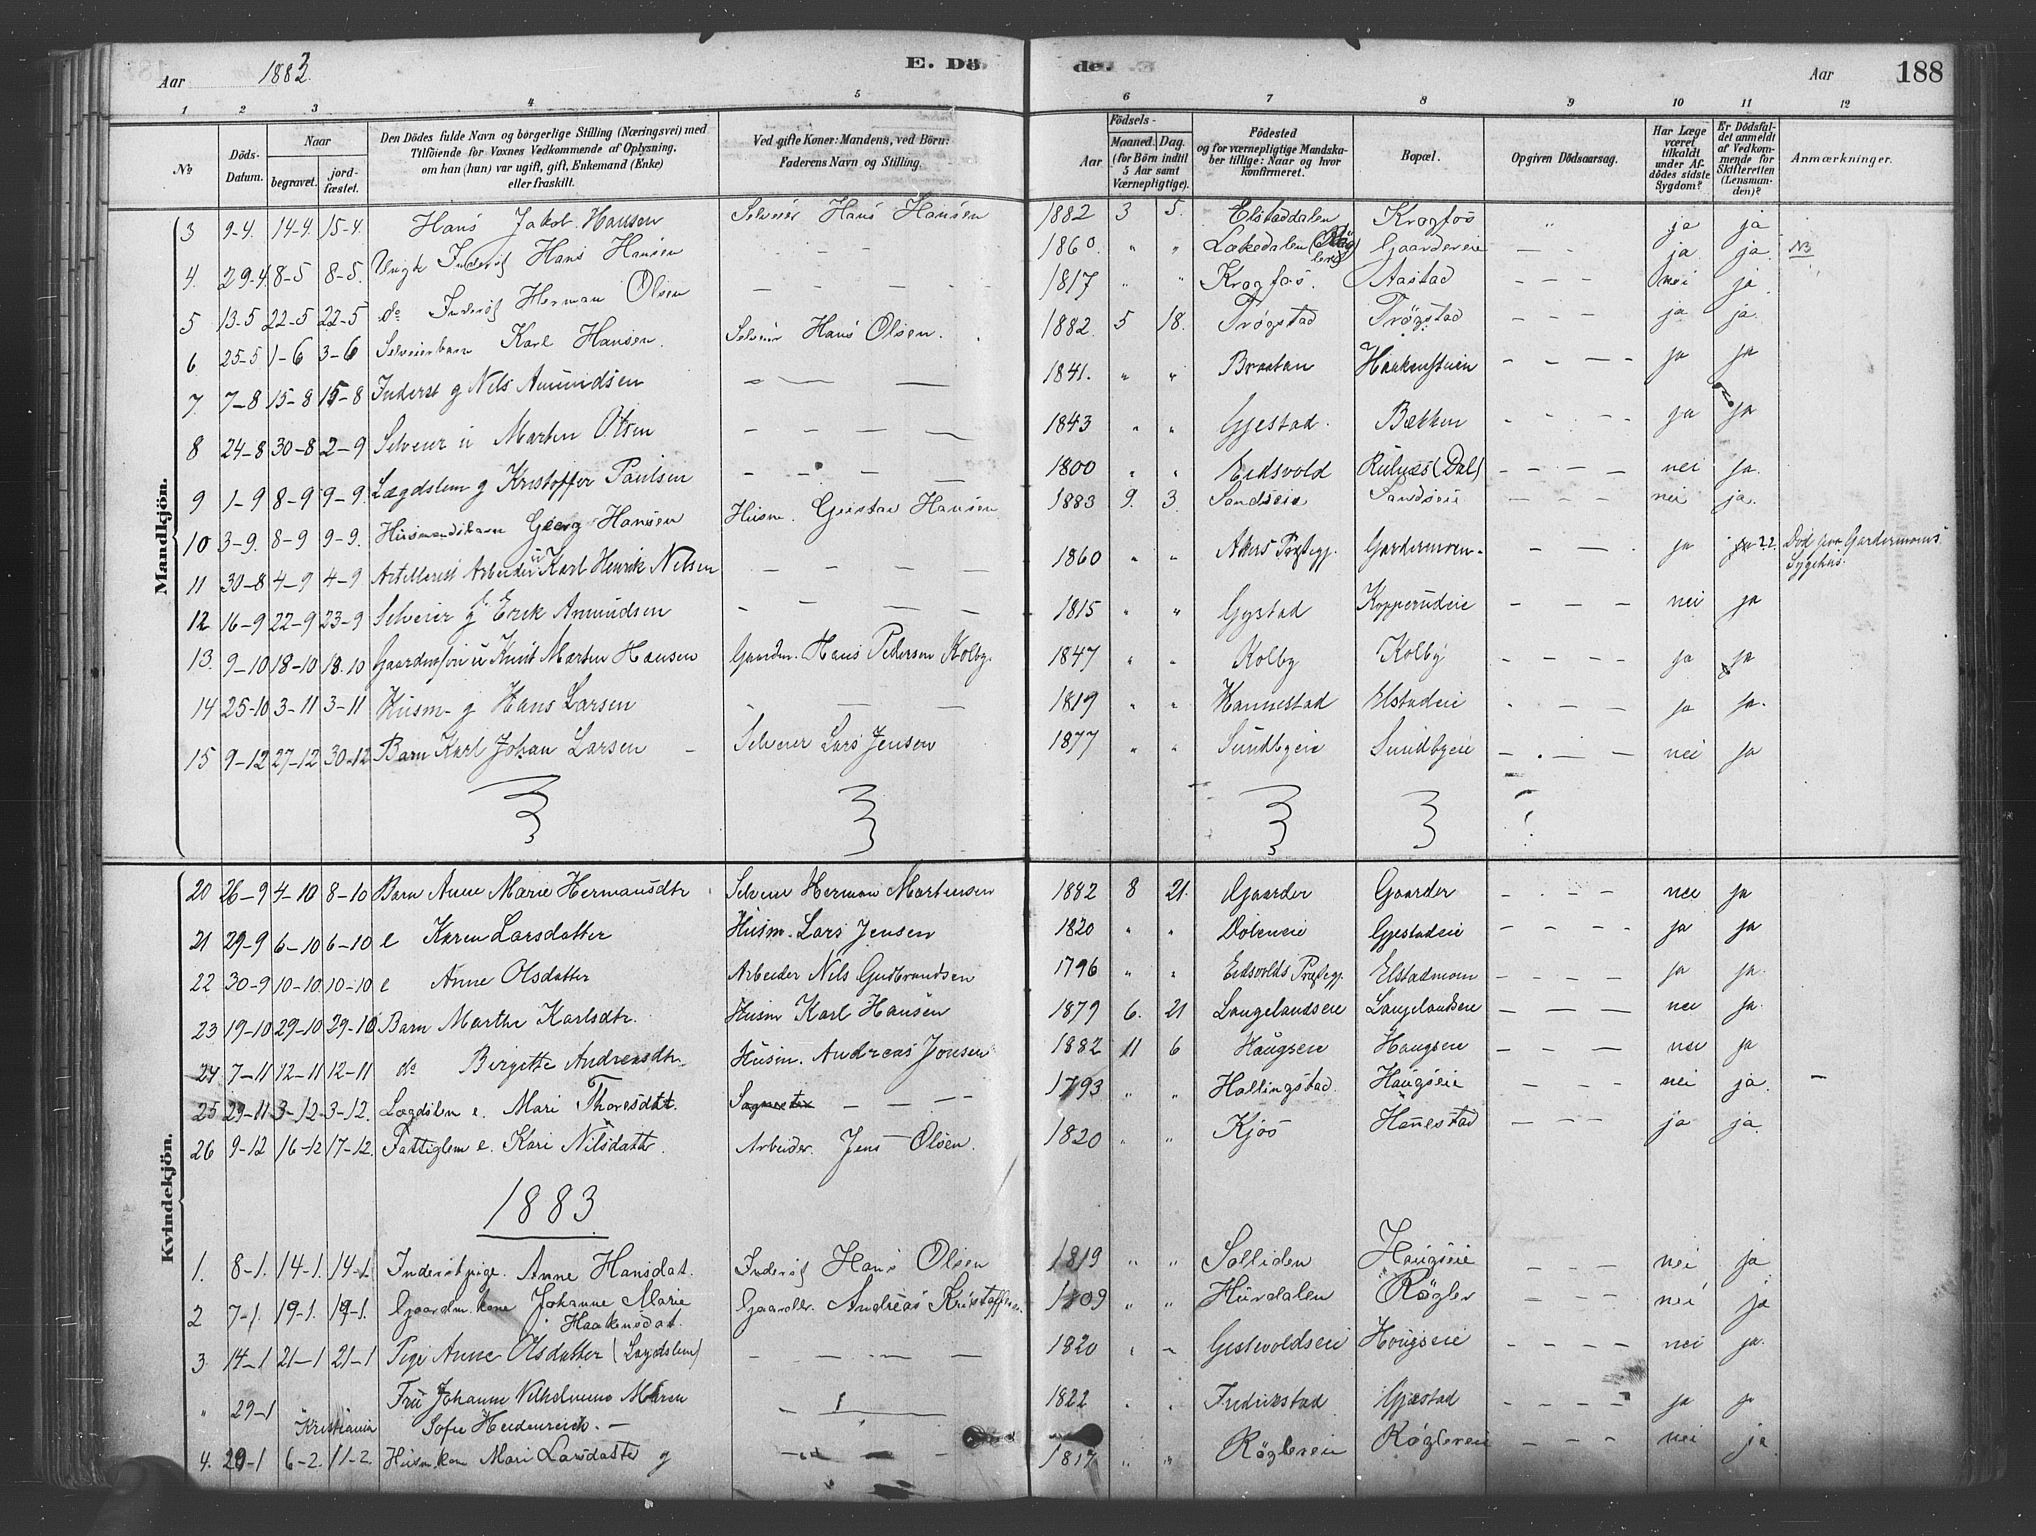 Aar 1883. E. Dö de. Aar 188
1 2 3 4 5 6 7 8 9 10 11 12
No. Döds-Datum. Naar begravet. jordfæstet. Den Dödes fulde Navn og borgerlige Stilling (Næringsvei) med Tilföiende for Voxnes Vedkommende af Oplysning, om han (hun) var ugift, gift, Enkemand (Enke) eller fraskilt. Ved gifte Koner: Mandens, ved Börn: Faderens Navn og Stilling. Födsels- Aar Maaned. Dag. (for Börn indtil 5 Aar samt Værnepligtige). Födested og for værnepligtige Mandskaber tillige: Naar og hvor konfirmeret. Bopæl. Opgiven Dödsaarsag. Har Læge været tilkaldt under Afdödes sidste Sygdom? Er Dödsfaldet anmeldt af Vedkommende for Skifteretten (Lensmanden)? Anmærkninger.
Mandkjön.
3 9-4. 14-4. 15-4. Hans Jakob Hansen Selveier Hans Hansen 1882 3 5. Elstaddalen Krogfos " ja ja
4. 29-4 8-5 8-5. Ungk. Inderst Hans Hansen - - - 1860. " " Løkedalen Gaardereie - - ja ja. NB
5 13-5 22-5 22-5 do Inderst Herman Olsen - - - - 1817 " " Krogfos. Aastad - - - nei ja.
6 25-5 1-6 3-6 Selveierbarn Karl Hansen. Selveier Hans Olsen. 1882. 5 18. Trøgstad Trøgstad - - - ja ja.
7. 7-8 15-8 15-8 Inderst g Nils Amundsen - - - 1841. " " Braatan Haakenstuen - - - - ja ja
8 24-8 30-8 2-9 Selveier u Martin Olsen - - - - 1843 " " Gjestad. Bækken - - - - ja ja
9 1-9 8-9 9-9. Lægdslem g Kristoffer Paulsen - - - - 1800 " " Eidsvold (Dal) - - - - nei ja.
10 3-9. 8-9 9-9. Husmandsbarn Georg Hansen Husm. Gustav Hansen 1883 9. 3. Sandseie Sandseie - - - - nei ja.
11 30-8 4-9 4-9 Artillerist Arbeider u Karl Henrik Nilsen - - - - 1860 " " Akers Præstegj. Gardermoen. - - - ja Død paa Gardermoens Sygehus.
12 16-9 22-9 23-9 Selveier g Erik Amundsen - - - - 1815 " " Gystad Kopperudeie - - - - nei ja
13. 9-10 18-10 18.10 Gaardmsøn u Knut Martin Hansen Gaardm. Hans Pedersen Kolby. 1847 " " Kolby Kolby - - - - ja ja
14 25-10 3-11 3-11 Husm- g Hans Larsen - - - 1819 " " Hannestad Elstadeie - - - - ja ja.
15 9-12 27-12 30-12 Barn Karl Johan Larsen - Selveier Lars Jensen 1877 " " Sundbyeie Sundbyeie - - - - nei ja
Kvindekjön.
20 26-9 4-10 8-10 Barn Anne Marie Hermansdtr Selveier Herman Martinsen 1882 8 21. Gaarder Gaarder - - - - nei ja
21 29-9 6-10 6-10 e Karen Larsdatter Husm. Lars Jensen 1820 " " Dølieneie Gjestadeie - - - - ja ja
22 30-9 10-10 10-10 e Anne Olsdatter Arbeider Nils Gudbrandsen 1796 " " Eidsvolds Præstegj. Elstadmoen - - - - ja ja.
23 19-10 29-10 29-10 Barn Marthe Karlsdtr. Husm Karl Hansen 1879 6. 21 Langelandseie Langelandseie - - - - nei ja.
24 7-11 12-11 12-11 do Birgitte Andreasdtr. Husm. Andreas Jonsen 1882 11 6 Haugseie Haugseie - - - - nei ja
25 29-11 3-12. 3-12. Lægdslem e. Mari Thoresdatt. - - - - 1793 " " Hallingstad. Haugseie - - - - nei ja. -
26 9-12 16-12 17-12. Fattiglem e. Kari Nilsdatter Arbeider. Jens Olsen. 1820 " " Kjos Hannestad - - - - ja ja.
1883
1. 8-1. 14-1. 14-1. Inderstpige. Anne Hansdat. Inderst Hans Olsen 1819 " " Solliden Haugseie - - - nei ja
2 7-1. 19-1. 19-1. Gaardm. kone Johanne Marie Haakensdat. Gaardbr. Andreas Kristoffersen 1809 " " Hurdalen Røgler - - - nei ja
3 14-1 21-1 21-1 Pige Anne Olsdatter (Lægdslem) - - - - 1820 " - Gislevoldseie Haugseie - - - - nei ja.
" 29-1 Kristiania Fru Johanne Vilhelmine Maren Sofie Heidenreich. - - - 1822 " " Fredrikstad Gjestad - - - - ja ja
4. 29-1 6-2. 11-2. Husm.kone Mari Larsdatter g - - - 1817 " " Røglereie Røglereie - - - - nei ja.